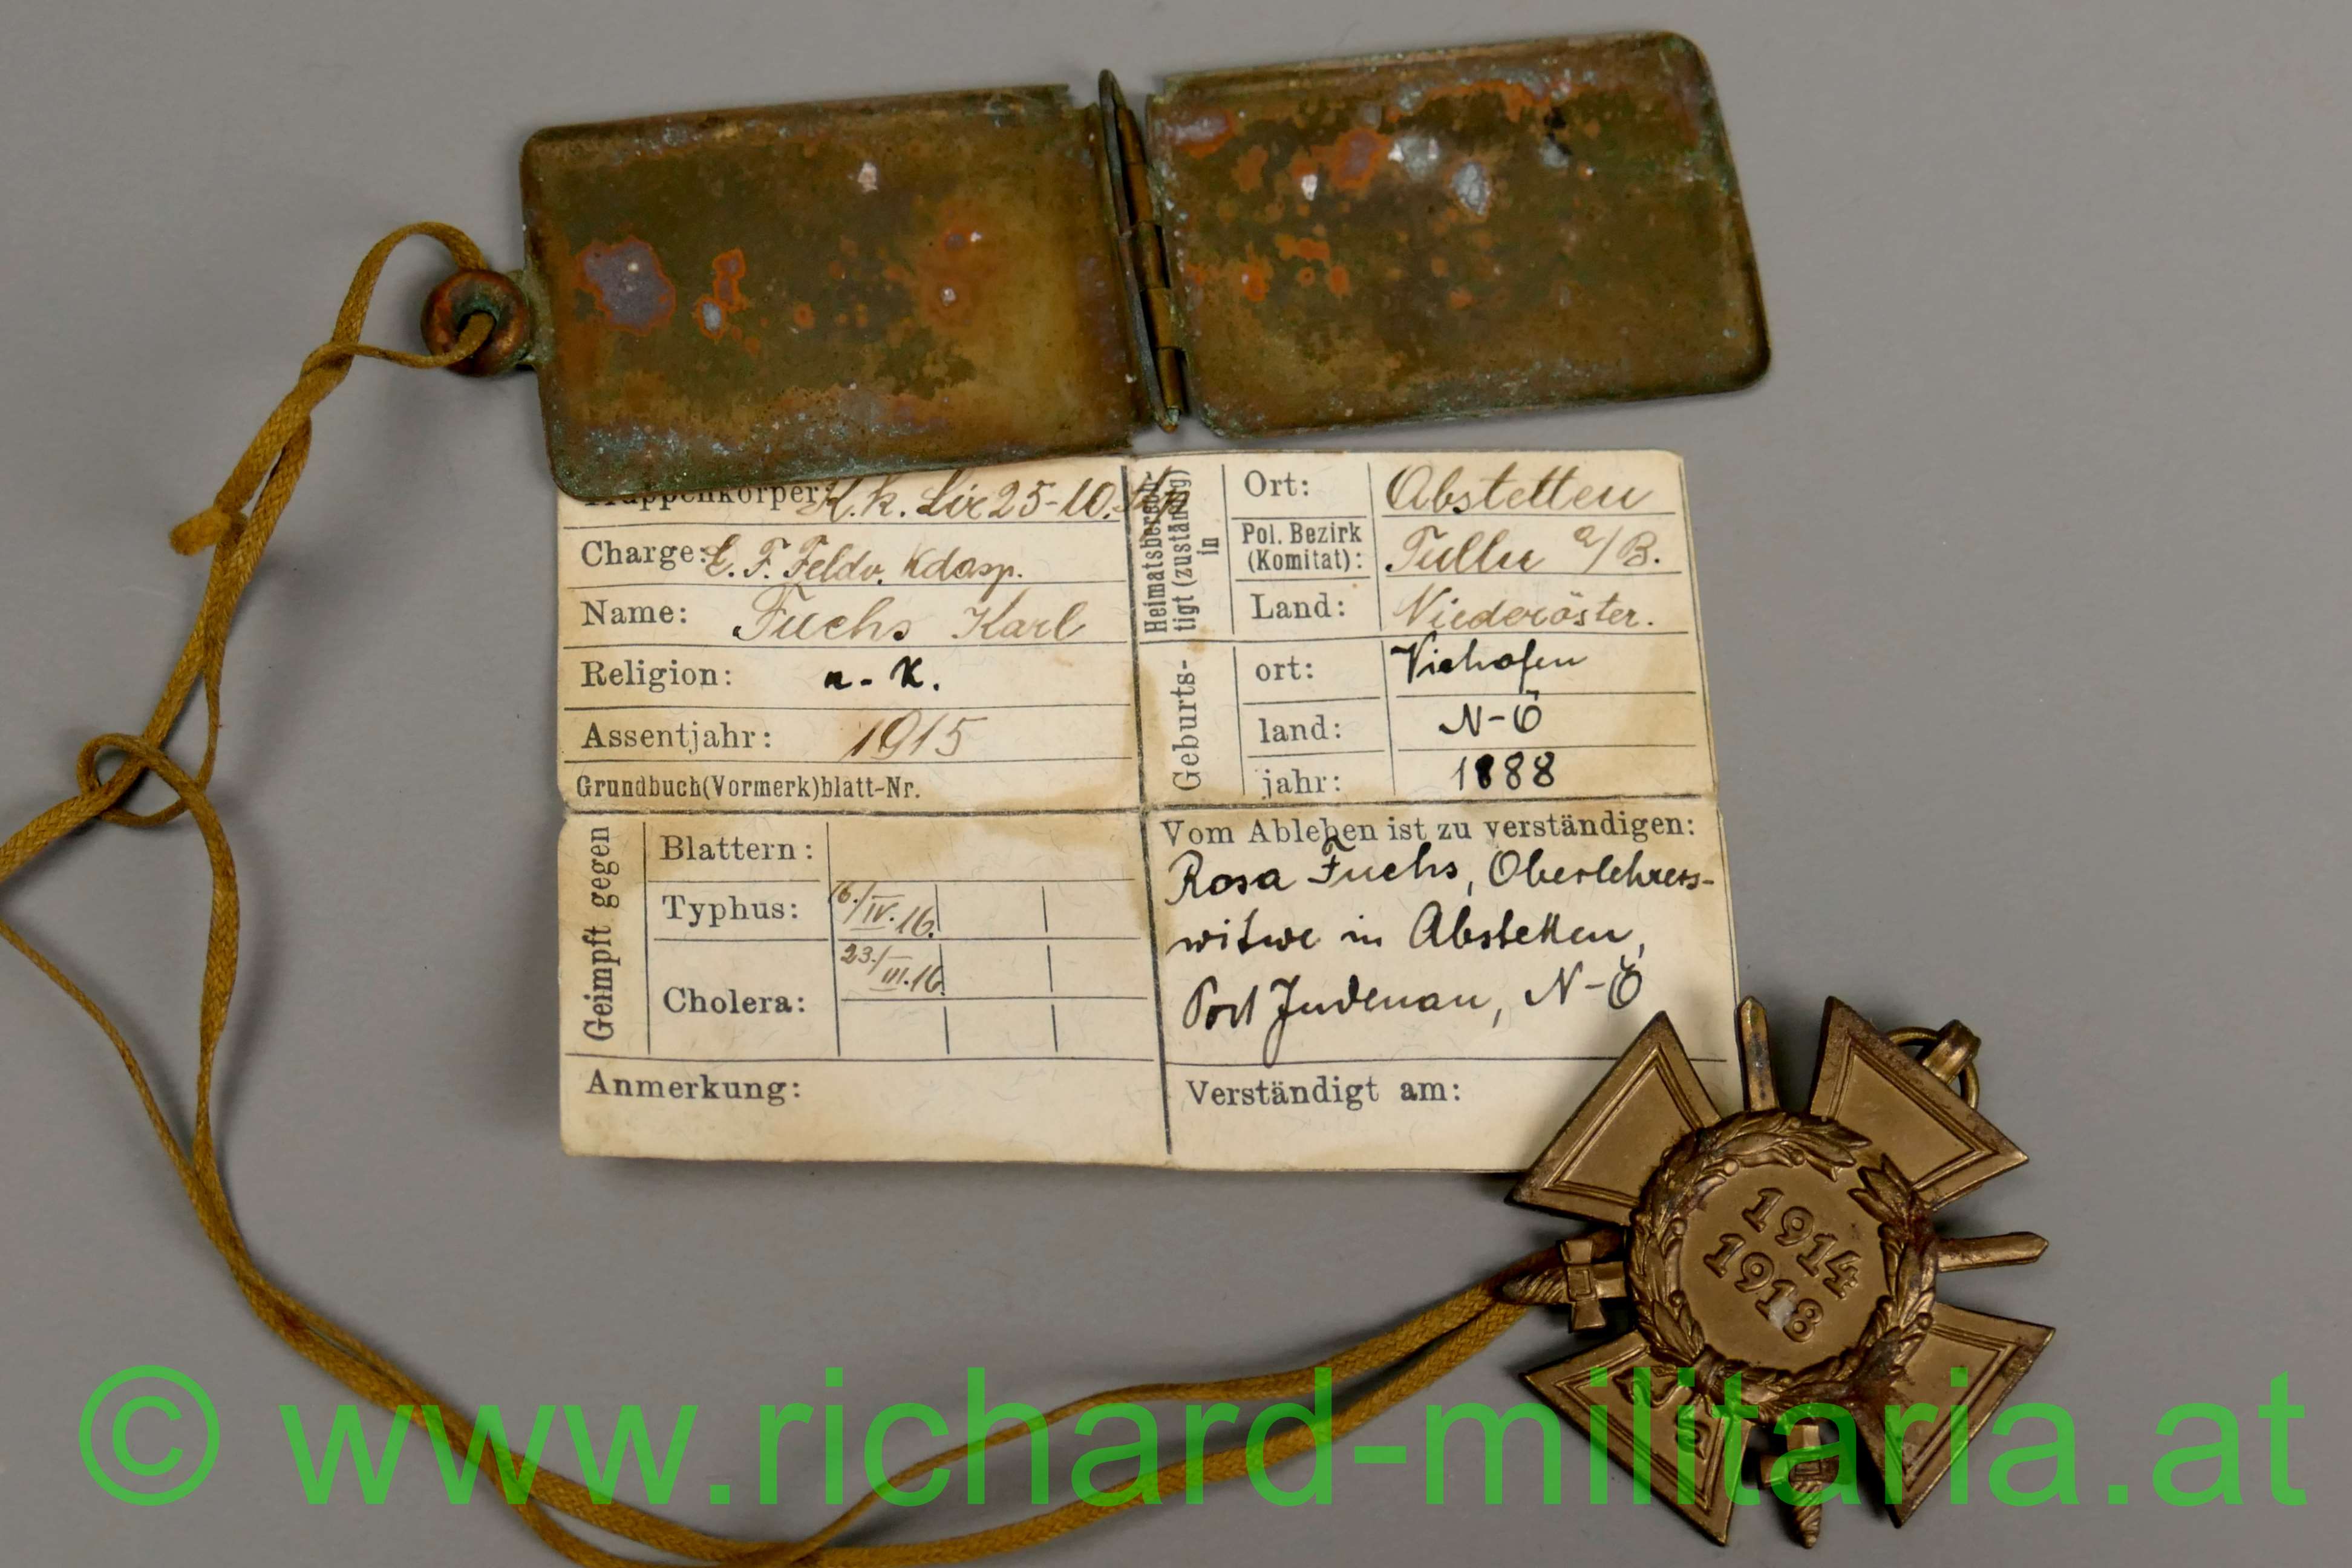 Truppenkörper: K. k. Lir 25-10.
Charge: E. F. Feldw. Kdasp.
Name: Fuchs Karl
Religion: r.-K.
Assentjahr: 1915
Grundbuch(Vormerk)blatt-Nr.
Heimatsberech-
tigt (zuständig)
in
Ort: Abstetten
Pol. Bezirk
(Komitat): Tulln a/B.
Land: Niederöster.
Geburts-
ort: Viehofen
land: N-Ö
jahr: 1888
Geimpft gegen
Blattern:
Typhus: 16./IV. 16.
Cholera: 23./III. 16.
Anmerkung:
Vom Ableben ist zu verständigen:
Rosa Fuchs, Oberlehrers-
witwe in Abstetten,
Post Judenau, N-Ö
Verständigt am:
1914
1918
© www.richard-militaria.at